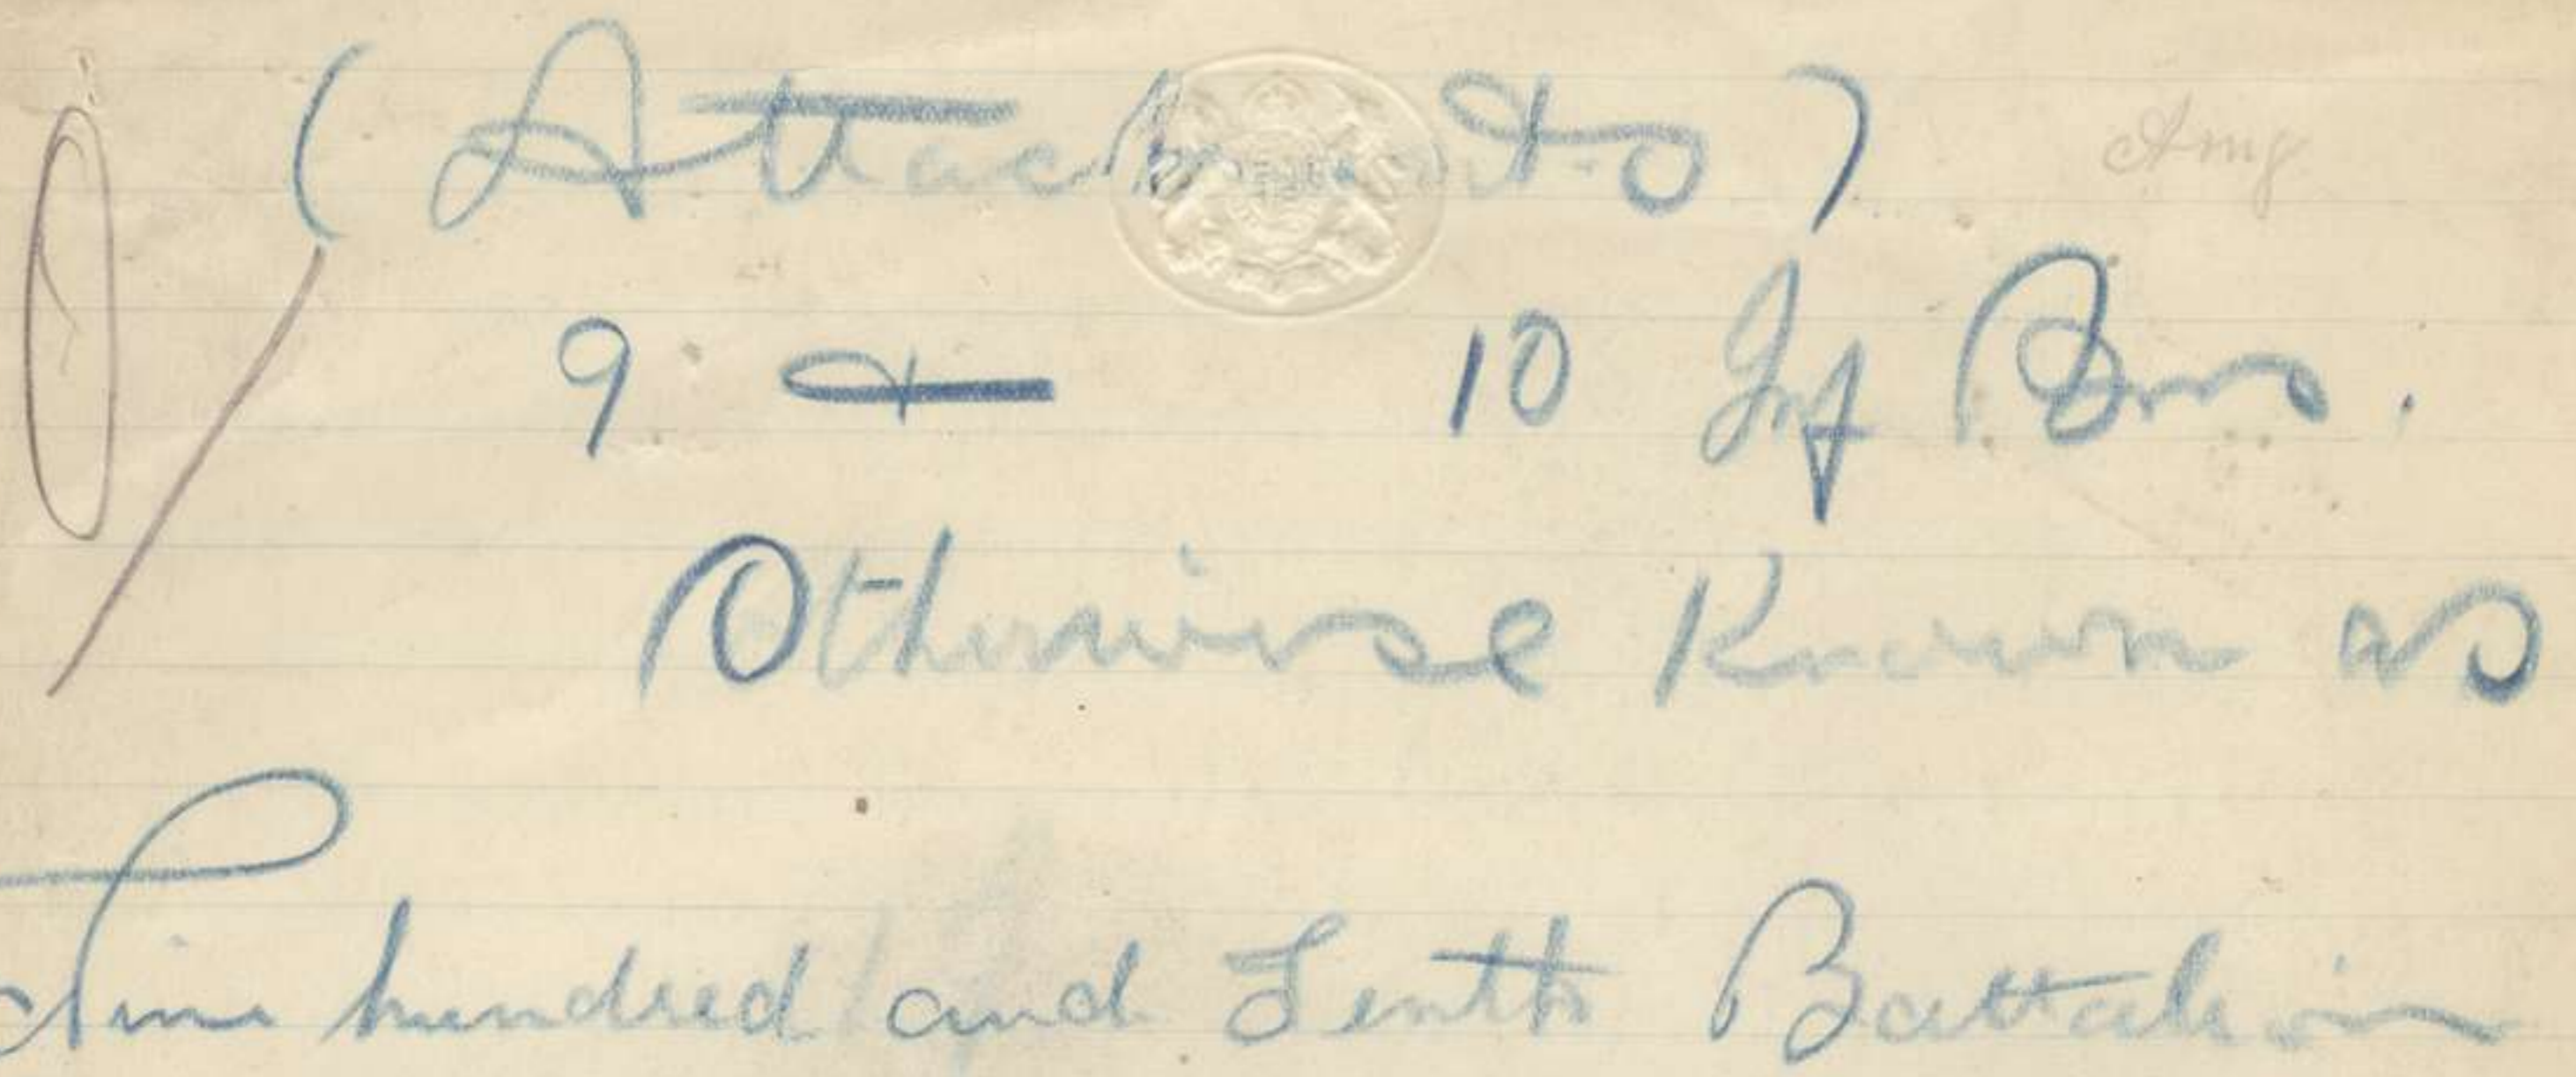 (Attachments)
9 & 10 Inf Bns.
Otherwise Known as
Nine hundred and Tenth Battalion